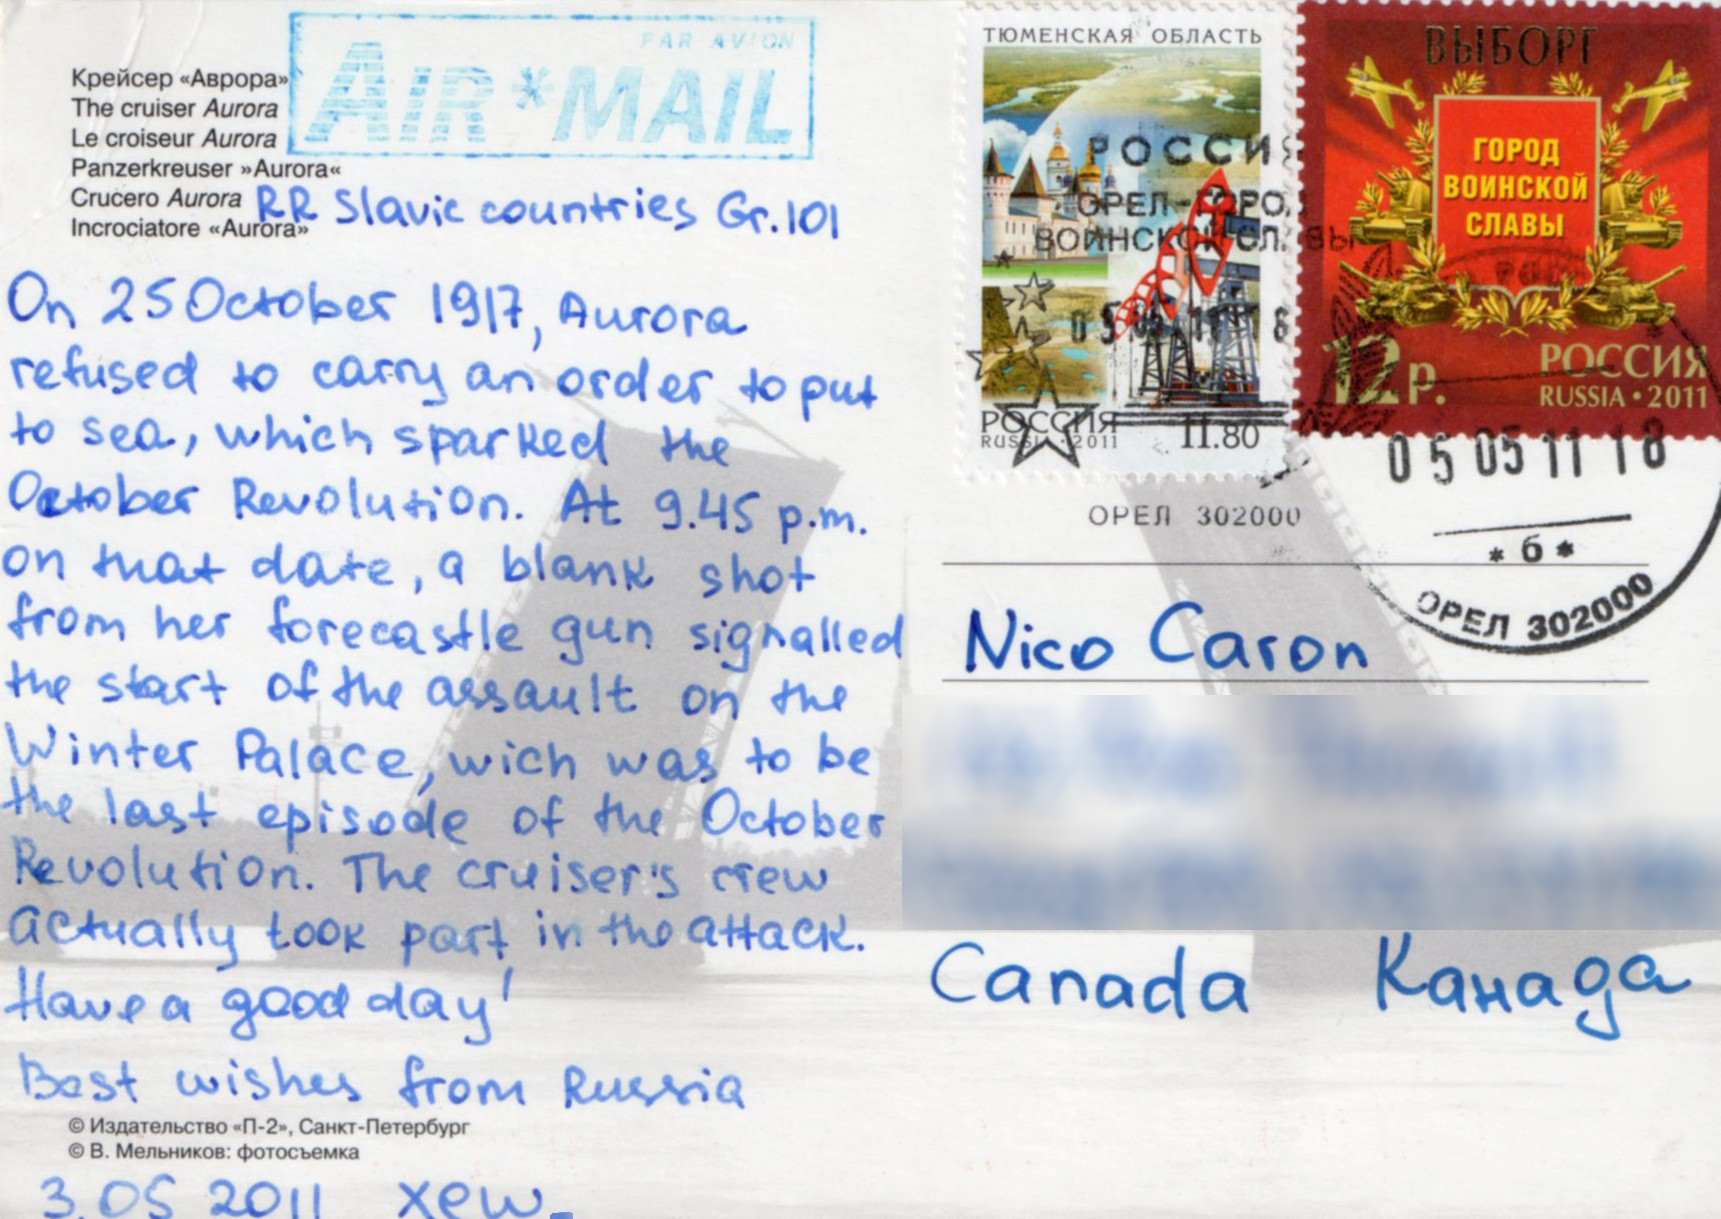 PAR AVION
AIR*MAIL
Крейсер «Аврора»
The cruiser Aurora
Le croiseur Aurora
Panzerkreuser »Aurora«
Crucero Aurora
Incrociatore «Aurora»
RR Slavic countries Gr.101
On 25 October 1917, Aurora
refused to carry an order to put
to sea, which sparked the
October Revolution. At 9.45 p.m.
on that date, a blank shot
from her forecastle gun signalled
the start of the assault on the
Winter Palace, wich was to be
the last episode of the October
Revolution. The cruiser's crew
actually took part in the attack.
Have a good day!
Best wishes from Russia
© Издательство «П-2», Санкт-Петербург
© В. Мельников: фотосъемка
3.05 2011 xew
ТЮМЕНСКАЯ ОБЛАСТЬ
РОССИЯ
RUSSIA • 2011
11.80
ВЫБОРГ
ГОРОД
ВОИНСКОЙ
СЛАВЫ
12р.
РОССИЯ
RUSSIA • 2011
РОССИ
ОРЕЛ - ГОРО
ВОИНСКОЙ СЛАВЫ
ОРЕЛ 302000
05 05 11 18
* б *
ОРЕЛ 302000
Nico Caron
Canada Канада